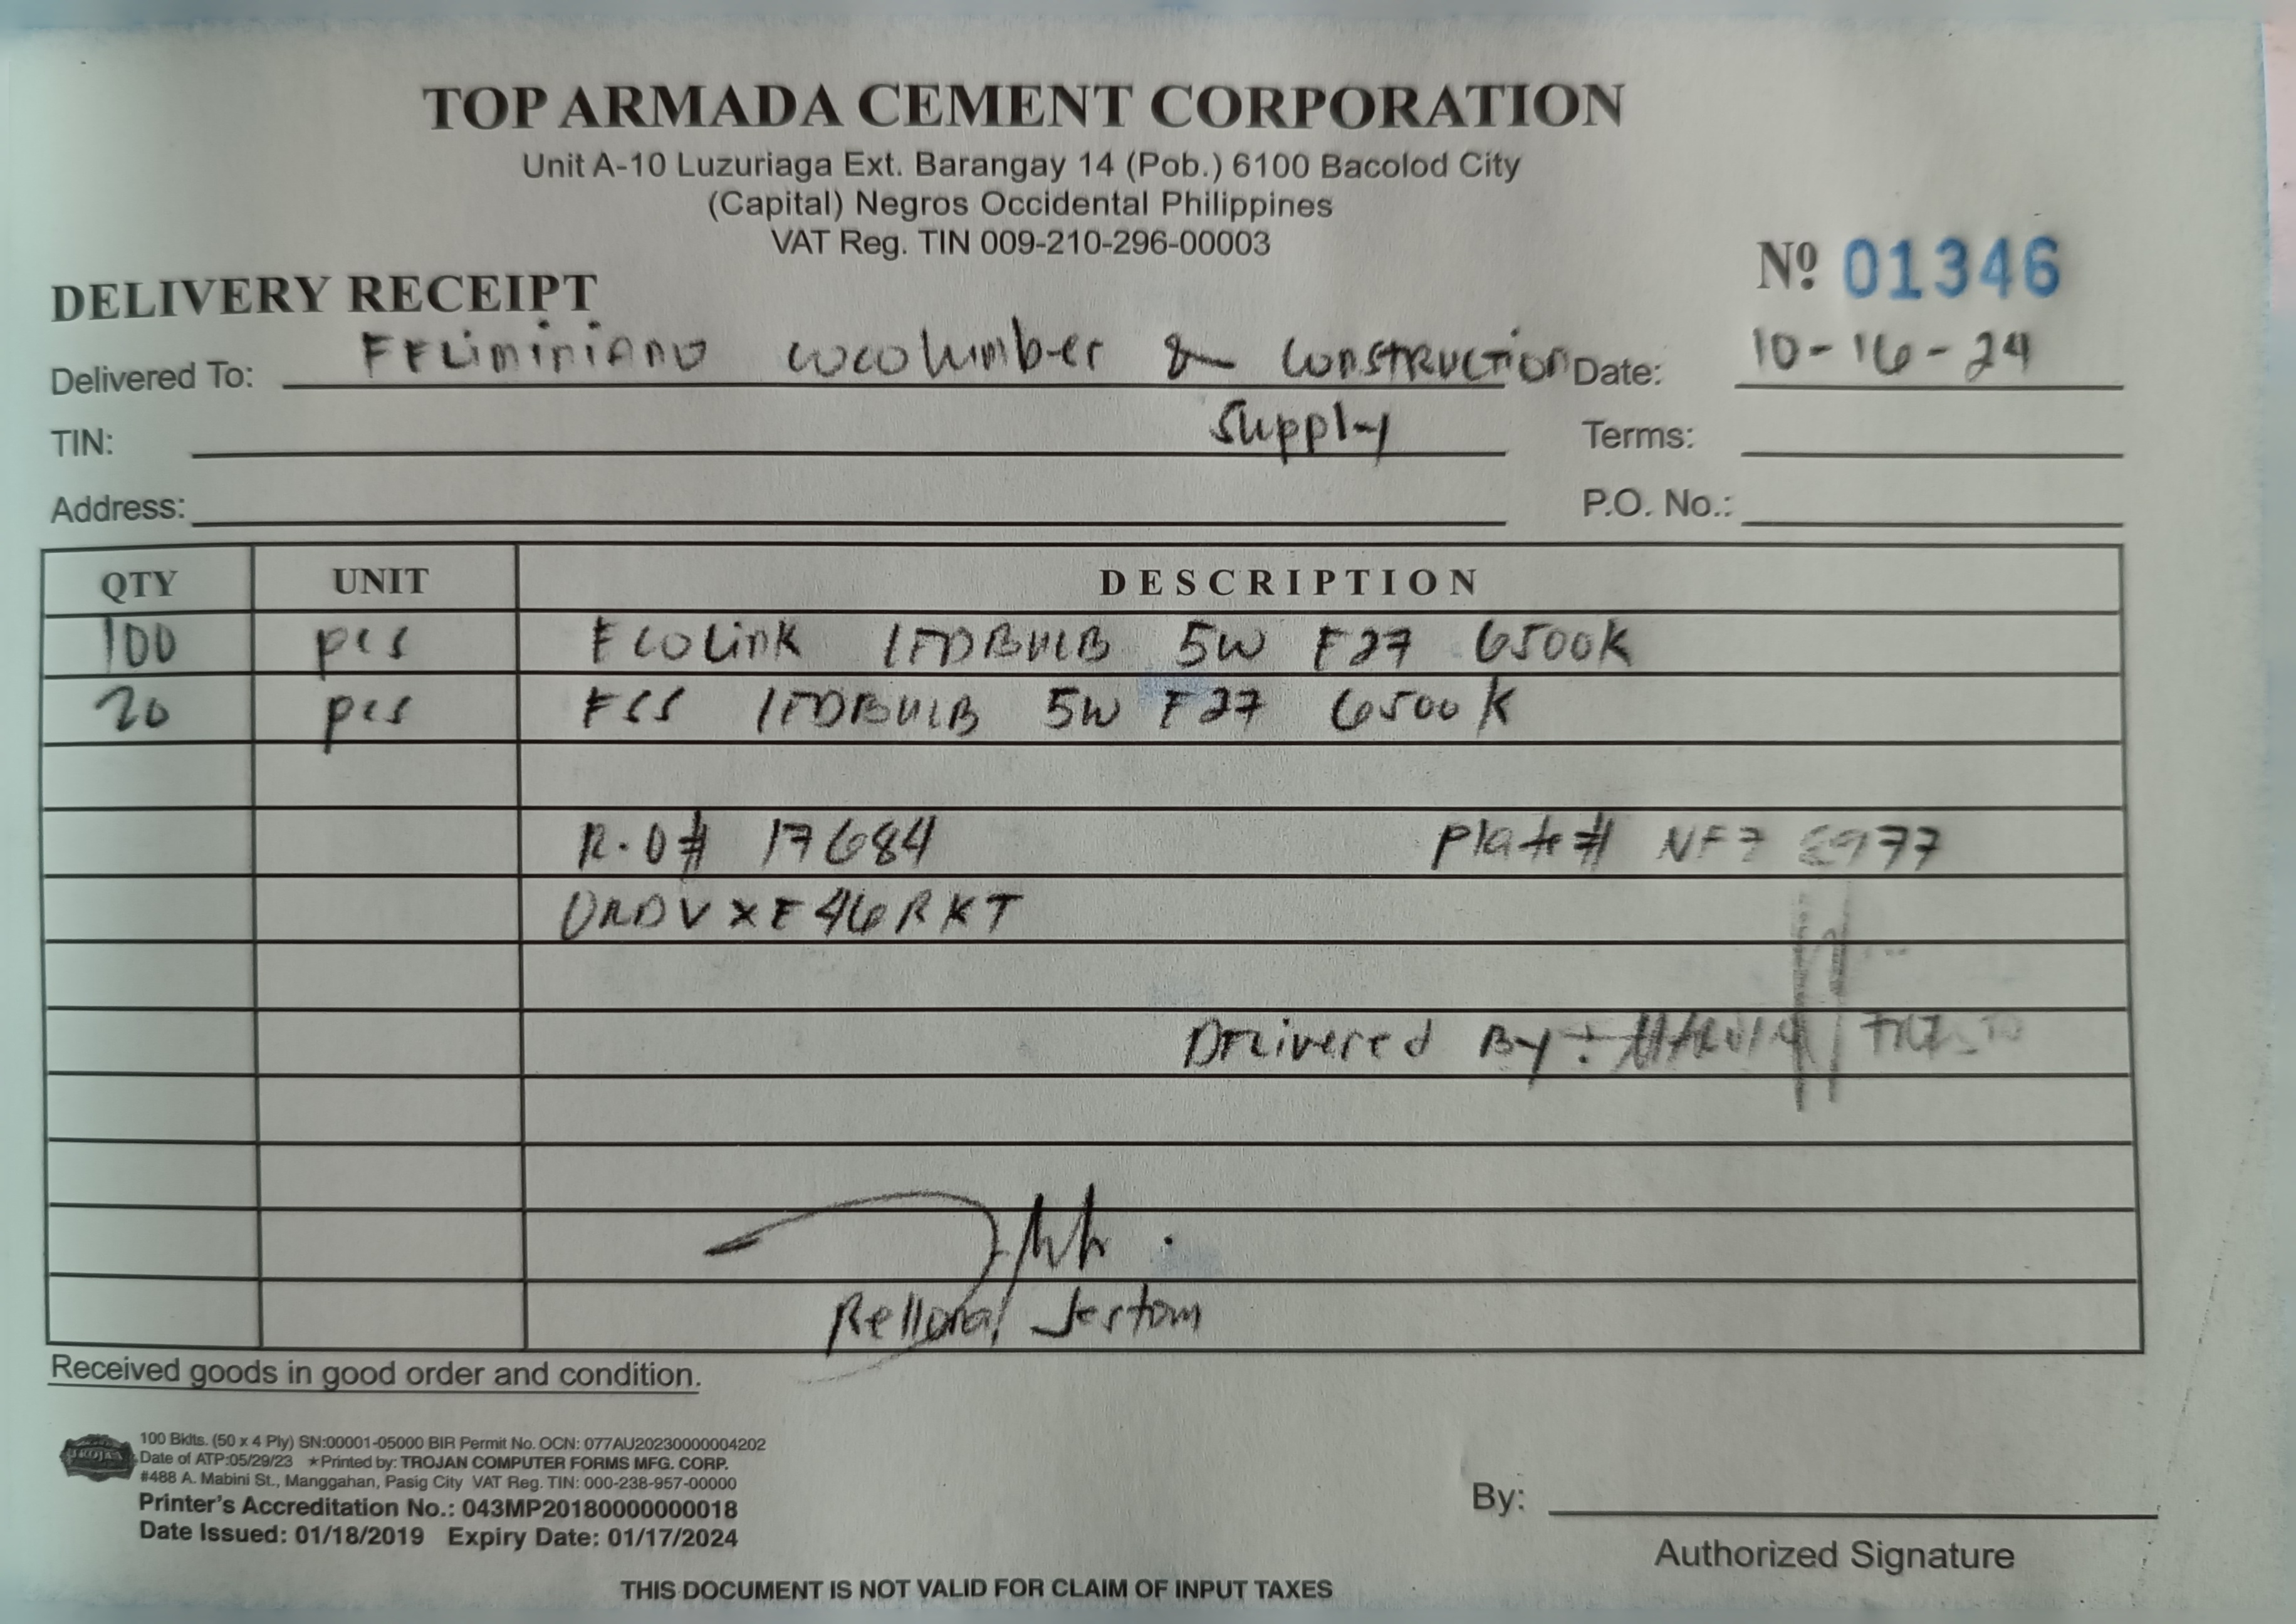 TOP ARMADA CEMENT CORPORATION
Unit A-10 Luzuriaga Ext. Barangay 14 (Pob.) 6100 Bacolod City
(Capital) Negros Occidental Philippines
VAT Reg. TIN 009-210-296-00003
Nº 01346
DELIVERY RECEIPT
Delivered To: FELiminiANO cocolumber & CONSTRUCTiON Date: 10-16-24
TIN: Supply Terms:
Address: P.O. No.:
QTY UNIT DESCRIPTION
100 pcs ECOLink LEDBULB 5W E27 6500K
20 pcs ESS LEDBULB 5W E27 6500K
R.O# 17684 Plate#
ORDVXE46RKT
DELivered By: MARVIN
Jestom
Received goods in good order and condition.
100 Bklts. (50 x 4 Ply) SN:00001-05000 BIR Permit No. OCN: 077AU20230000004202
Date of ATP:05/29/23 ★Printed by: TROJAN COMPUTER FORMS MFG. CORP.
#488 A. Mabini St., Manggahan, Pasig City VAT Reg. TIN: 000-238-957-00000
Printer's Accreditation No.: 043MP20180000000018
Date Issued: 01/18/2019 Expiry Date: 01/17/2024
By:
Authorized Signature
THIS DOCUMENT IS NOT VALID FOR CLAIM OF INPUT TAXES